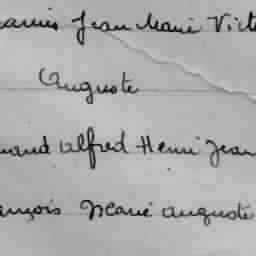 Jean Marie Vict
Auguste
mand Alfred Henri Jean
ançois Marie Auguste